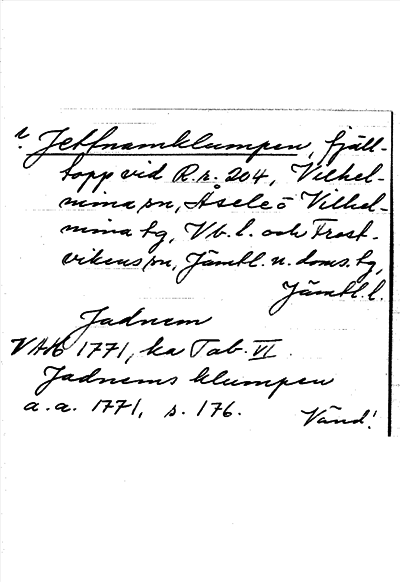 Jetfnamklumpen, fjäll-
topp vid R.r. 204, Vilhel-
mina sn, Åsele o Vilhel-
mina tg, Vb. l. och Frost-
vikens sn, Jämtl. n. doms. tg,
Jämtl. l.
Jadnem
VAH 1771, ka Tab. VI
Jadnems klumpen
a. a. 1771, s. 176. Vänd!